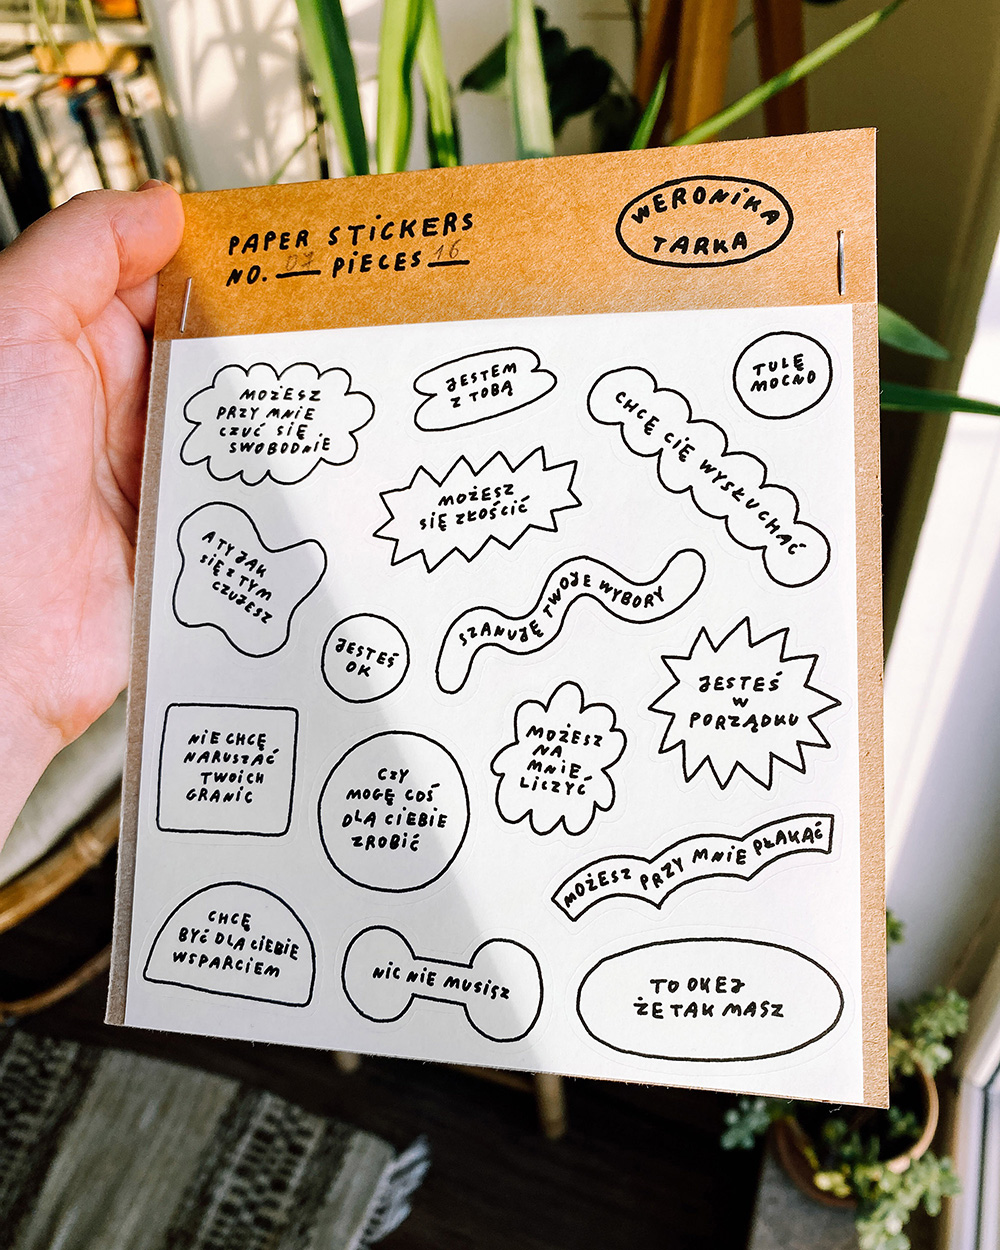 PAPER STICKERS
NO. 07 PIECES 16
WERONIKA
TARKA
MOŻESZ
PRZY MNIE
CZUĆ SIĘ
SWOBODNIE
JESTEM
Z TOBĄ
CHCĘ CIĘ WYSŁUCHAĆ
TULĘ
MOCNO
MOŻESZ
SIĘ ZŁOŚCIĆ
A TY JAK
SIĘ Z TYM
CZUJESZ
SZANUJĘ TWOJE WYBORY
JESTEŚ
OK
JESTEŚ
W
PORZĄDKU
NIE CHCĘ
NARUSZAĆ
TWOICH
GRANIC
CZY
MOGĘ COŚ
DLA CIEBIE
ZROBIĆ
MOŻESZ
NA
MNIE
LICZYĆ
MOŻESZ PRZY MNIE PŁAKAĆ
CHCĘ
BYĆ DLA CIEBIE
WSPARCIEM
NIC NIE MUSISZ
TO OKEJ
ŻE TAK MASZ